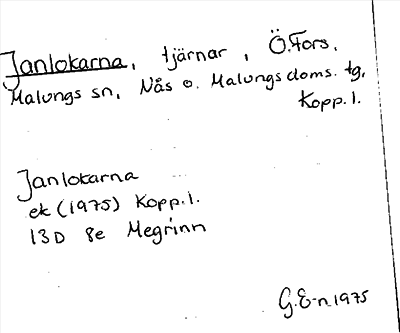 Janlokarna, tjärnar, Ö.Fors,
Malungs sn, Nås o. Malungs doms. tg,
Kopp. l.
Janlokarna
ek (1975) Kopp. l.
13D 8e Megrinn
G.E-n 1975